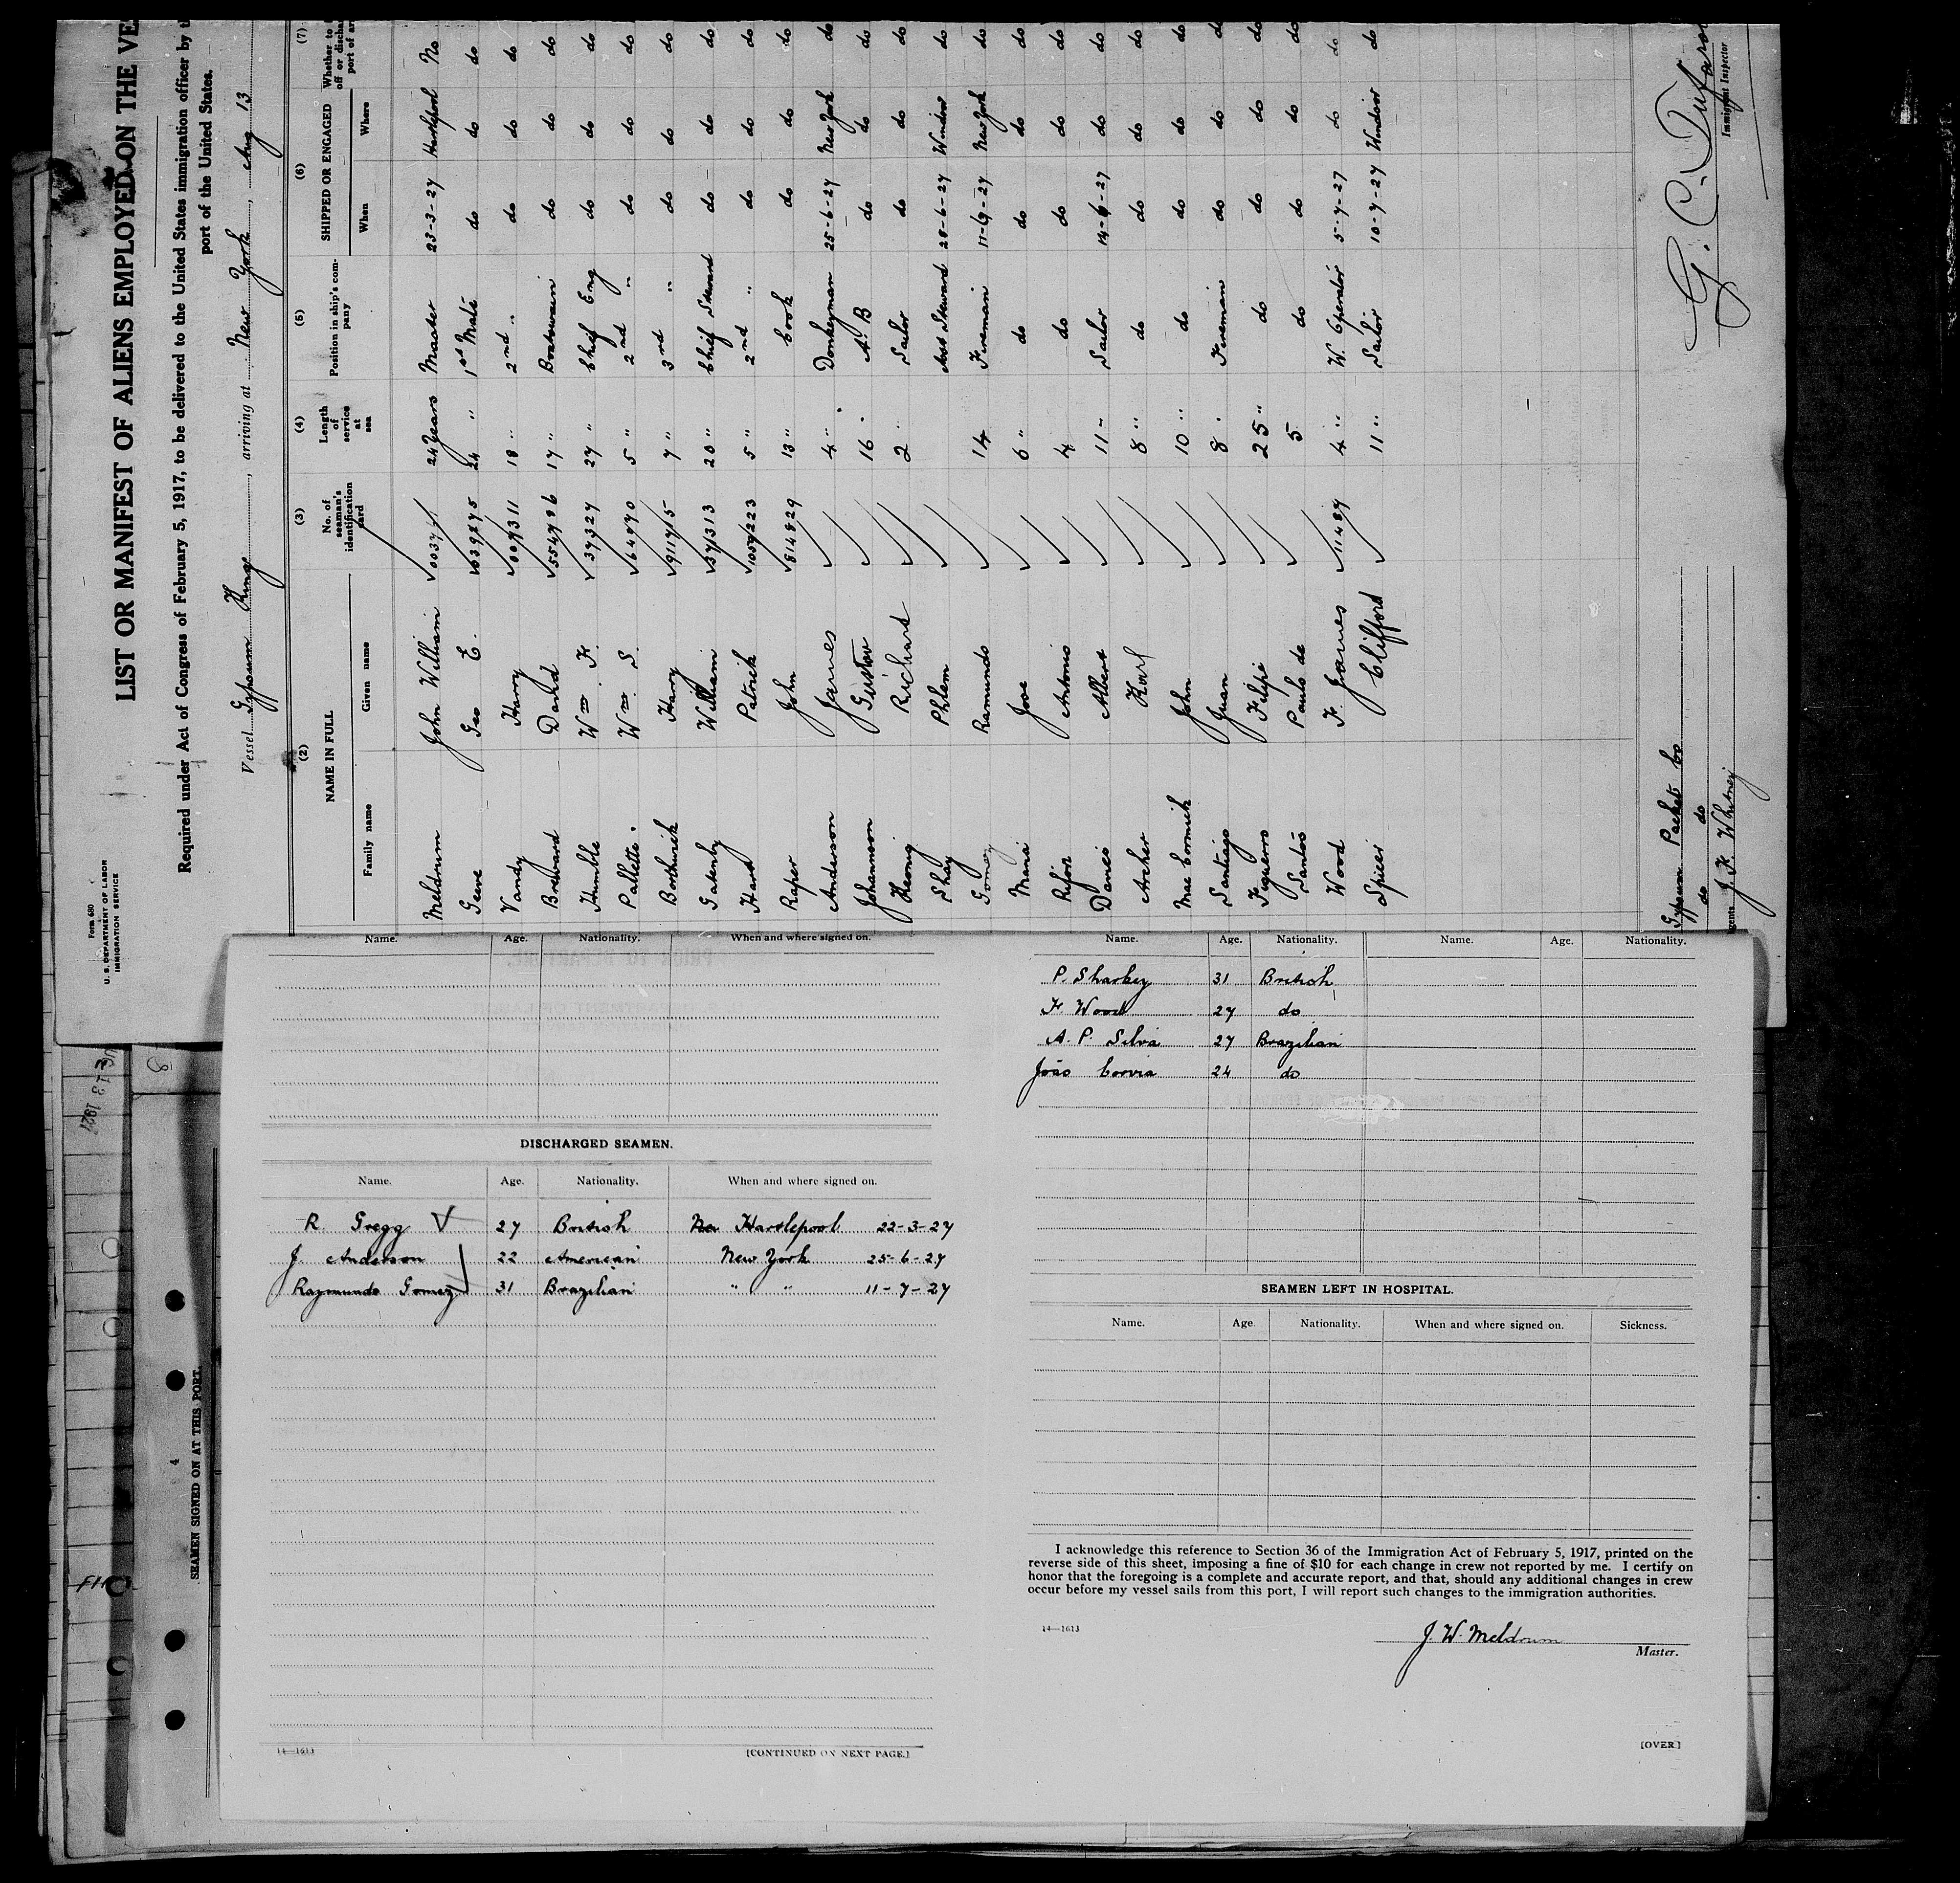 Form 680
U. S. DEPARTMENT OF LABOR
IMMIGRATION SERVICE
LIST OR MANIFEST OF ALIENS EMPLOYED ON THE VE
Required under Act of Congress of February 5, 1917, to be delivered to the United States immigration officer by t
port of the United States.
Vessel Gypsum King, arriving at New York, Aug 13
(2) (3) (4) (5) (6) (7)
NAME IN FULL No. of seaman's identification card Length of service at sea Position in ship's company SHIPPED OR ENGAGED Whether to off or discha port of ar
Family name Given name When Where
Meldrum John William 24 Years Master 23-3-27 Hartlepool No
Geeve Geo E. 639275 24 " 1st Mate do do do
Vandy Harry 18 " 2nd " do do do
Breward David 554796 17 " Boatswain do do do
Humble Wm F. 37327 27 " Chief Eng do do do
Pallette. Wm S. 164970 5 " 2nd " do do do
Borthwick Harry 7 " 3rd " do do do
Gatenby William 371313 20 " Chief Steward do do do
Hart Patrick 1059223 5 " 2nd " do do do
Raper John 814829 13 " Cook do do do
Anderson James 4 " Donkeyman 25-6-27 New York do
Johannson Gustav 16 " A B do do do
Richart 2 " Sailor do do do
Shay Phlem Asst Steward 28-6-27 Windsor do
Gomez Ramundo 14 Fireman New York do
Maria Jose 6 " do do do do
Antonio 4 do do do do
Davies Albert 11 " Sailor do do
Archer Karl 8 " do do do do
MacCormick John 10 " do do do do
Santiago Juan 8 " Fireman do do do
Figuerro Filipi 25 " do do do do
Santos Paulo de 5 do do do do
Wood F. James 11487 4 " W. Operator 5-7-27 do do
Spicer Clifford 11 " Sailor 10-7-27 Windsor do
Gypsum Packet Co
do do
gents J. F. Whitney
Immigrant Inspector
4
SEAMEN SIGNED ON AT THIS PORT.
Name. Age. Nationality. When and where signed on.
DISCHARGED SEAMEN.
Name. Age. Nationality. When and where signed on.
R. Gregg 27 British Hartlepool 22-3-27
J. Anderson 22 American New York 25-6-27
Raymundo Gomez 31 Brazilian " " 11-7-27
14—1613 [CONTINUED ON NEXT PAGE.]
Name. Age. Nationality. Name. Age. Nationality.
P. Sharkey 31 British
F. Wood 27 do
A. P. Silva 27 Brazilian
João Corvia 24 do
SEAMEN LEFT IN HOSPITAL.
Name. Age. Nationality. When and where signed on. Sickness.
I acknowledge this reference to Section 36 of the Immigration Act of February 5, 1917, printed on the
reverse side of this sheet, imposing a fine of $10 for each change in crew not reported by me. I certify on
honor that the foregoing is a complete and accurate report, and that, should any additional changes in crew
occur before my vessel sails from this port, I will report such changes to the immigration authorities.
14—1613
J. W. Meldrum
Master.
[OVER]